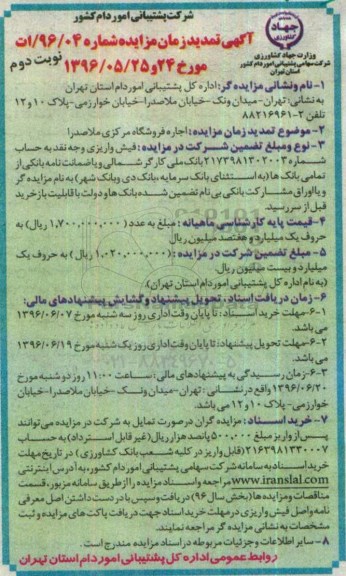 شرکت پشتیبانی امور دام کشور
جهاد کشاورزی
وزارت جهاد کشاورزی
شرکت سهامی پشتیبانی امور دام کشور
استان تهران
آگهی تمدید زمان مزایده شماره ۱/۹۶/۰۴ات
مورخ ۲۴و۱۳۹۶/۰۵/۲۵
نوبت دوم
۱-نام ونشانی مزایده گر: اداره کل پشتیبانی امور دام استان تهران
به نشانی: تهران-میدان ونک -خیابان ملاصدرا-خیابان خوارزمی-پلاک ۱۰و۱۲
تلفن ۲-۸۸۲۱۶۹۶۱
۲-موضوع تمدید زمان مزایده: اجاره فروشگاه مرکزی ملاصدرا
۳-نوع ومبلغ تضمین شرکت در مزایده: فیش واریزی وجه نقد به حساب
شماره ۲۱۷۳۹۸۱۳۰۲۰۰۳ بانک ملی کارگر شمالی ویاضمانت نامه بانکی از
تمامی بانک ها (به استثنای بانک سرمایه ،بانک دی وبانک شهر) به نام مزایده گر
و یا اوراق مشارکت بانکی بی نام تضمین شده بانک ها و دولت با قابلیت باز خرید
قبل از سررسید.
۴-قیمت پایه کارشناسی ماهیانه : مبلغ به عدد (۱,۷۰۰,۰۰۰,۰۰۰ ریال) به
حروف یک میلیارد و هفتصد میلیون ریال
۵-مبلغ تضمین شرکت در مزایده : (۱,۰۲۰,۰۰۰,۰۰۰ ریال) به حروف یک
میلیارد و بیست میلیون ریال.
(به نام اداره کل پشتیبانی امور دام استان تهران)
۶-زمان دریافت اسناد، تحویل پیشنهاد و گشایش پیشنهادهای مالی:
۶-۱-مهلت خرید اسناد: تا پایان وقت اداری روز سه شنبه مورخ ۱۳۹۶/۰۶/۰۷
می باشد.
۶-۲-مهلت تحویل پیشنهاد: تا پایان وقت اداری روز یک شنبه مورخ ۱۳۹۶/۰۶/۱۹
می باشد.
۶-۳-زمان رسیدگی به پیشنهادهای مالی: ساعت ۱۱:۰۰ روز دوشنبه مورخ
۱۳۹۶/۰۶/۲۰ واقع در نشانی : تهران-میدان ونک -خیابان ملاصدرا-خیابان
خوارزمی-پلاک ۱۰ و ۱۲ می باشد.
۷-خرید اسناد: مزایده گران در صورت تمایل به شرکت در مزایده می توانند
پس از واریز مبلغ ۵۰۰,۰۰۰ پانصد هزار ریال(غیر قابل استرداد) به حساب
۲۱۶۳۹۸۱۳۳۰۰۷ (قابل واریز در کلیه شعب بانک کشاورزی) در تاریخ مهلت
خرید اسناد به سامانه شرکت سهامی پشتیبانی امور دام کشور، به آدرس اینترنتی
www.iranslal.com مراجعه واسناد مزایده را از طریق سامانه مزبور، قسمت
مناقصات ومزایده ها (بخش سال ۹۶) دریافت وسپس با در دست داشتن اصل معرفی
نامه واصل فیش واریزی در مهلت خرید اسناد جهت دریافت پاکت های مزایده و ثبت
مشخصات به نشانی مزایده گر مراجعه نمایند.
۸-سایر اطلاعات و جزئیات مربوطه در اسناد مزایده مندرج است.
روابط عمومی اداره کل پشتیبانی امور دام استان تهران